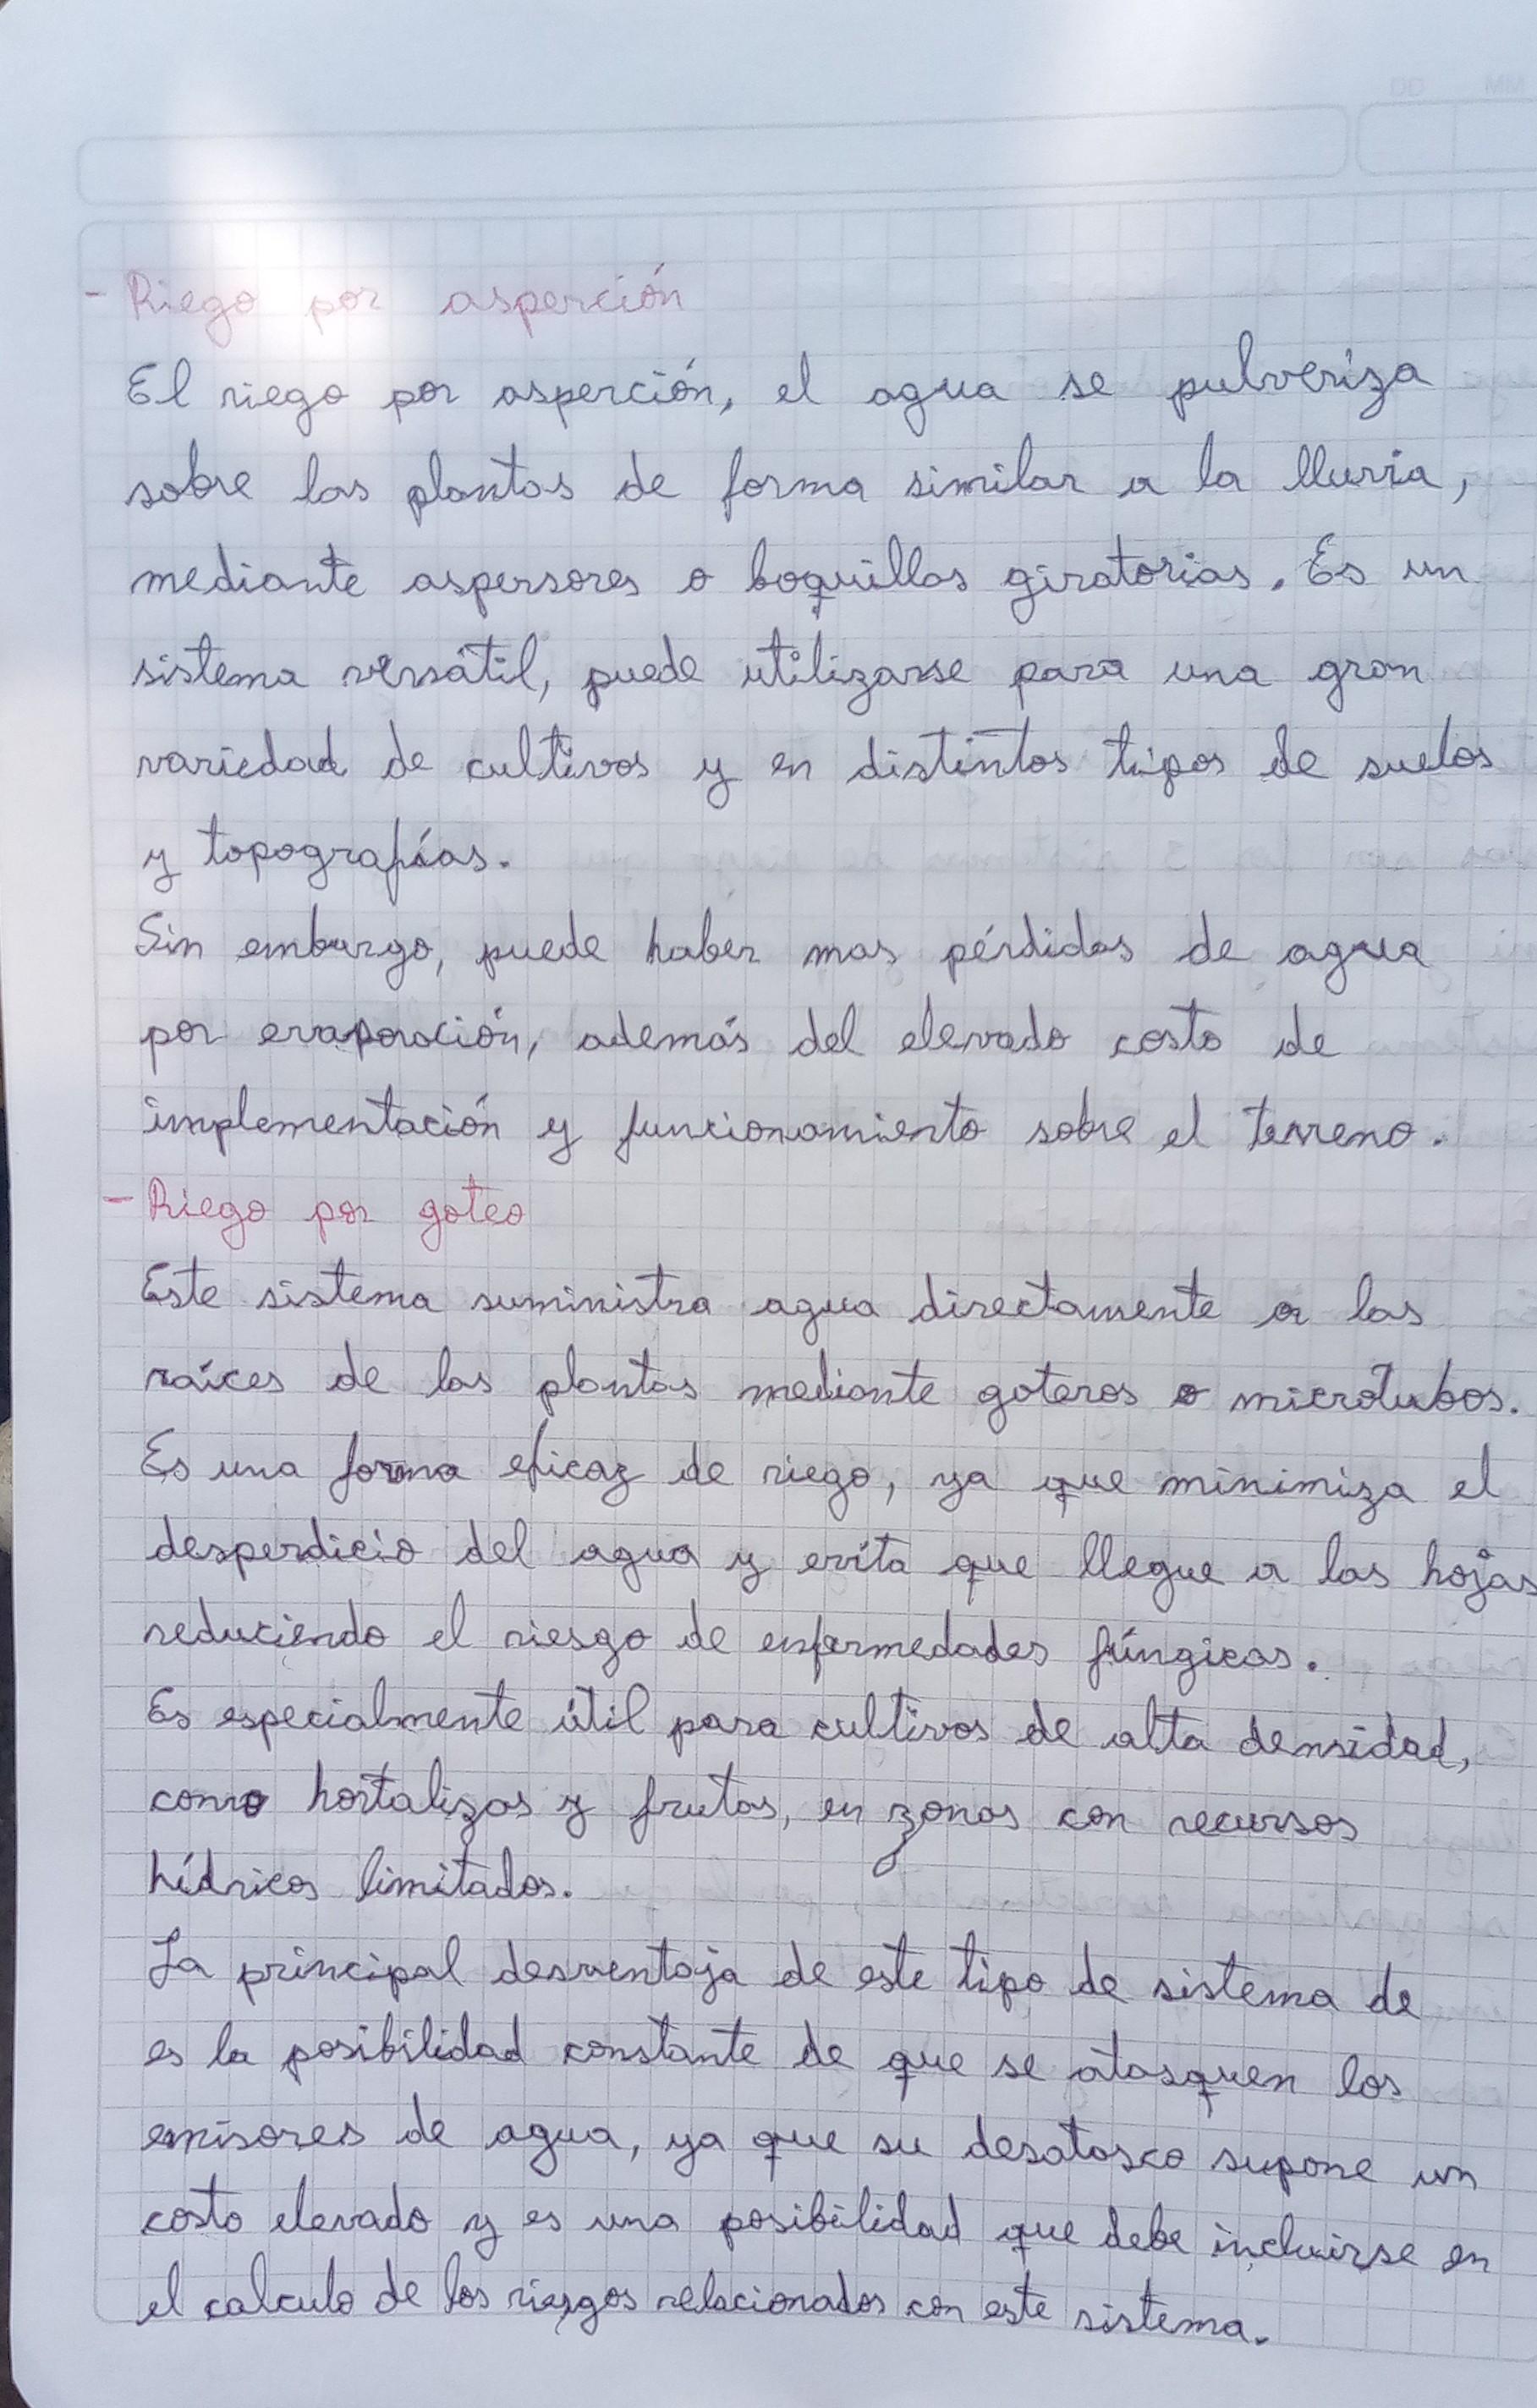 - Riego por asperción
El riego por asperción, el agua se pulveriza
sobre las plantas de forma similar a la lluvia,
mediante aspersores o boquillas giratorias. Es un
sistema versátil, puede utilizarse para una gran
variedad de cultivos y en distintos tipos de suelos
y topografías.
Sin embargo, puede haber mas pérdidas de agua
por evaporación, además del elevado costo de
implementación y funcionamiento sobre el terreno.
- Riego por goteo
Este sistema suministra agua directamente a las
raíces de las plantas mediante goteros o microtubos.
Es una forma eficaz de riego, ya que minimiza el
desperdicio del agua y evita que llegue a las hojas
reduciendo el riesgo de enfermedades fúngicas.
Es especialmente útil para cultivos de alta densidad,
como hortalizas y frutas, en zonas con recursos
hídricos limitados.
La principal desventaja de este tipo de sistema de
es la posibilidad constante de que se atasquen los
emisores de agua, ya que su desatasco supone un
costo elevado y es una posibilidad que debe incluirse en
el calculo de los riesgos relacionados con este sistema.